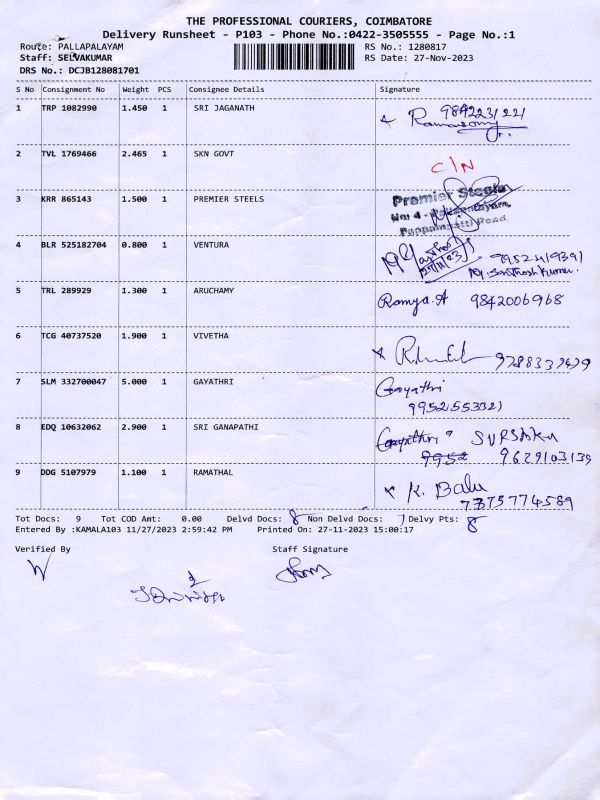 THE PROFESSIONAL COURIERS, COIMBATORE
Delivery Runsheet - P103 - Phone No.:0422-3505555 - Page No.:1
Route: PALLAPALAYAM RS No.: 1280817
Staff: SELVAKUMAR RS Date: 27-Nov-2023
DRS No.: DCJB128081701
S No Consignment No Weight PCS Consignee Details Signature
1 TRP 1082990 1.450 1 SRI JAGANATH
2 TVL 1769466 2.465 1 SKN GOVT
C/N
3 KRR 865143 1.500 1 PREMIER STEELS
Premier Steels
No: 4 - Pallapalayam,
Pappampatti Road
4 BLR 525182704 0.800 1 VENTURA
27/11/23 9952419391
M. Santhosh Kumar.
5 TRL 289929 1.300 1 ARUCHAMY Ramya.A 9842006968
6 TCG 40737520 1.900 1 VIVETHA
7 SLM 332700047 5.000 1 GAYATHRI Gayathri
9952553321
8 EDQ 10632062 2.900 1 SRI GANAPATHI Gayathri
9952 9629103139
9 DDG 5107979 1.100 1 RAMATHAL K. Balu
7375774589
Tot Docs: 9 Tot COD Amt: 0.00 Delvd Docs: 8 Non Delvd Docs: 1 Delvy Pts: 8
Entered By :KAMALA103 11/27/2023 2:59:42 PM Printed On: 27-11-2023 15:00:17
Verified By Staff Signature